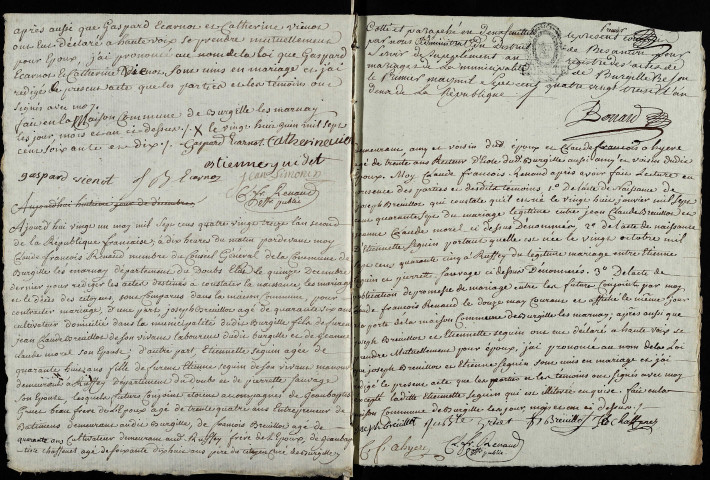 après aussi que Gaspard Ecarnot et Catherine Vienot
ont Eut déclaré a haute voix se prendre mutuellement
pour Epoux, j'ai prononcé au nom de la loi que Gaspard
Ecarnot et Catherine Vienot sont unis en mariage et j'ai
rédigé le présent acte que les parties et les témoins ont
signés avec moy.
fait en la Maison Commune de Burgille les marnay
les jour, mois et an cy dessus. X le vingt huit juin mil sept
cent soixante et dix. Gaspard Ecarnot Catherine vienot
Etienne guedot
gaspard vienot
Jean Simonin
Cl. fr. Renaud
off. public
Aujourdhui huitieme jour de Decembre
Ajourdhui vingt un may mil sept cens quatre vingt treize l'an second
de la République française, à dix heures du matin pardevant moy
Claude françois Renaud membre du Conseil General de la Commune de
Burgille les marnay département du Doubs Elus le quinze Decembre
dernier pour rédiger les actes destinés a constater la naissance, les mariages
et le décès des citoyens, sont Comparus dans la maison Commune, pour
contracter mariage, d'une part joseph Breuillot age de quarante six ans
cultivateur domicilié dans la municipalité dudit Burgille fils de feu
Jean Claude Breuillot de son vivant laboureur dudit Burgille et de Jeanne
claude morel son Epouse; d'autre part Etiennette Seguin agée de
quarante huit ans fille de furent Etienne Seguin de son vivant manouvrier
demeurant a Ruffey Département du doubs et de pierrette Sauvage
son Epouse, lesquels futurs Conjoints etoient accompagnés de
beau frère de l'Epoux age de trente quatre ans Entrepreneur de
Batimens demeurant audit Burgille, de francois Breuillot agé de
quarante ans Cultivateur demeurant audit Ruffey frère de l'Epoux, de
Cotté et paraphé en deux feuillets le présent
par nous administrateur du District de Besançon pour
Servir de supplément au registre des actes de
mariages de la municipalité de Burgille Besançon
le premier may mil Sept cent quatre vingt treize l'an
deux de la République
Bouard
demeurant, amy et voisin dudit époux et Claude francois
agé de trente ans Recteur d'Ecole dudit Burgille aussi amy et voisin dudit
Epoux. Moy Claude francois Renaud après avoir fait Lecture en
presence des parties et desdits temoins. 1° de l'acte de Naissance de
Joseph Breuillot, qui constate qu'il est né le vingt huit janvier mil Sept
cent quarante Sept du mariage légitime entre jean Claude Breuillot et
Jeanne Claude morel ci dessus dénommés 2° de l'acte de naissance
d'Etiennette Seguin portant quelle est née le vingt octobre mil
Sept cens quarante cinq a Ruffey du légitime mariage entre Etienne
Seguin et pierrette Sauvage ci dessus Dénommés. 3° de l'acte de
publication de promesse de mariage entre les futurs Conjoints par moy
Claude francois Renaud le douze may Courant et affiché le même jour
a la porte de la maison Commune de Burgille les marnay; après aussi que
Joseph Breuillot et Etiennette Seguin ont eu déclaré a haute voix se
prendre Mutuellement pour époux, j'ai prononcé au nom de la Loi
que joseph Breuillot et Etiennette Seguin sont unis en mariage et j'ai
rédigé le present acte que les parties et les temoins ont signés avec moy
excepté laditte Etiennette Seguin qui est illitérée enquise. fait en la
maison Commune de Burgille les jour, mois et an ci dessus.
Joseph breuillot
f. Breuillot
Cl. fr. Renaud
off. public